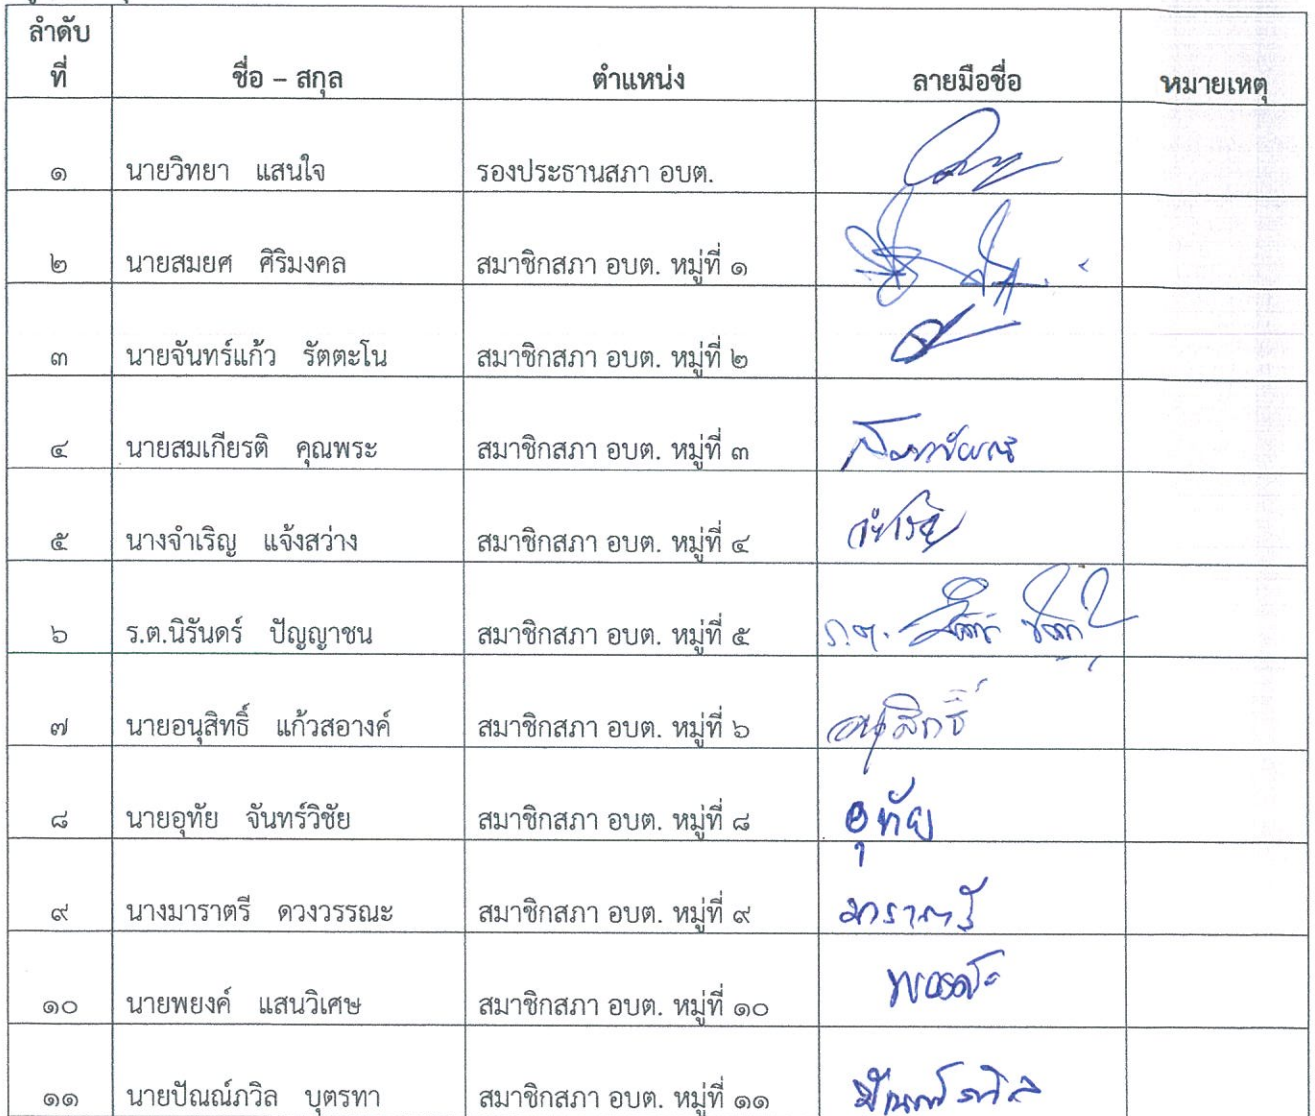 ลำดับ
ที่ ชื่อ – สกุล ตำแหน่ง ลายมือชื่อ หมายเหตุ
๑ นายวิทยา แสนใจ รองประธานสภา อบต.
๒ นายสมยศ ศิริมงคล สมาชิกสภา อบต. หมู่ที่ ๑
๓ นายจันทร์แก้ว รัตตะโน สมาชิกสภา อบต. หมู่ที่ ๒
๔ นายสมเกียรติ คุณพระ สมาชิกสภา อบต. หมู่ที่ ๓
๕ นางจำเริญ แจ้งสว่าง สมาชิกสภา อบต. หมู่ที่ ๔ จำเริญ
๖ ร.ต.นิรันดร์ ปัญญาชน สมาชิกสภา อบต. หมู่ที่ ๕ ร.ต.
๗ นายอนุสิทธิ์ แก้วสอางค์ สมาชิกสภา อบต. หมู่ที่ ๖ อนุสิทธิ์
๘ นายอุทัย จันทร์วิชัย สมาชิกสภา อบต. หมู่ที่ ๘ อุทัย
๙ นางมาราตรี ดวงวรรณะ สมาชิกสภา อบต. หมู่ที่ ๙ มาราตรี
๑๐ นายพยงค์ แสนวิเศษ สมาชิกสภา อบต. หมู่ที่ ๑๐
๑๑ นายปัณณ์ภวิล บุตรทา สมาชิกสภา อบต. หมู่ที่ ๑๑ ปัณณ์ภวิล